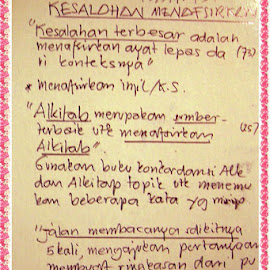 KESALAHAN MENAFSIRKAN
"Kesalahan terbesar adalah
menafsirkan ayat lepas da (73)
ri konteksnya"
* Menafsirkan Injil/K.S.
"Alkitab merupakan sumber-
terbaik utk menafsirkan (257)
Alkitab".
Gunakan buku konkordansi Alk
dan Alkitab topik utk menemu
kan beberapa kata yg
"jalan membacanya sedikitnya
5 kali, mengajukan pertanyaan
membuat ringkasan dari